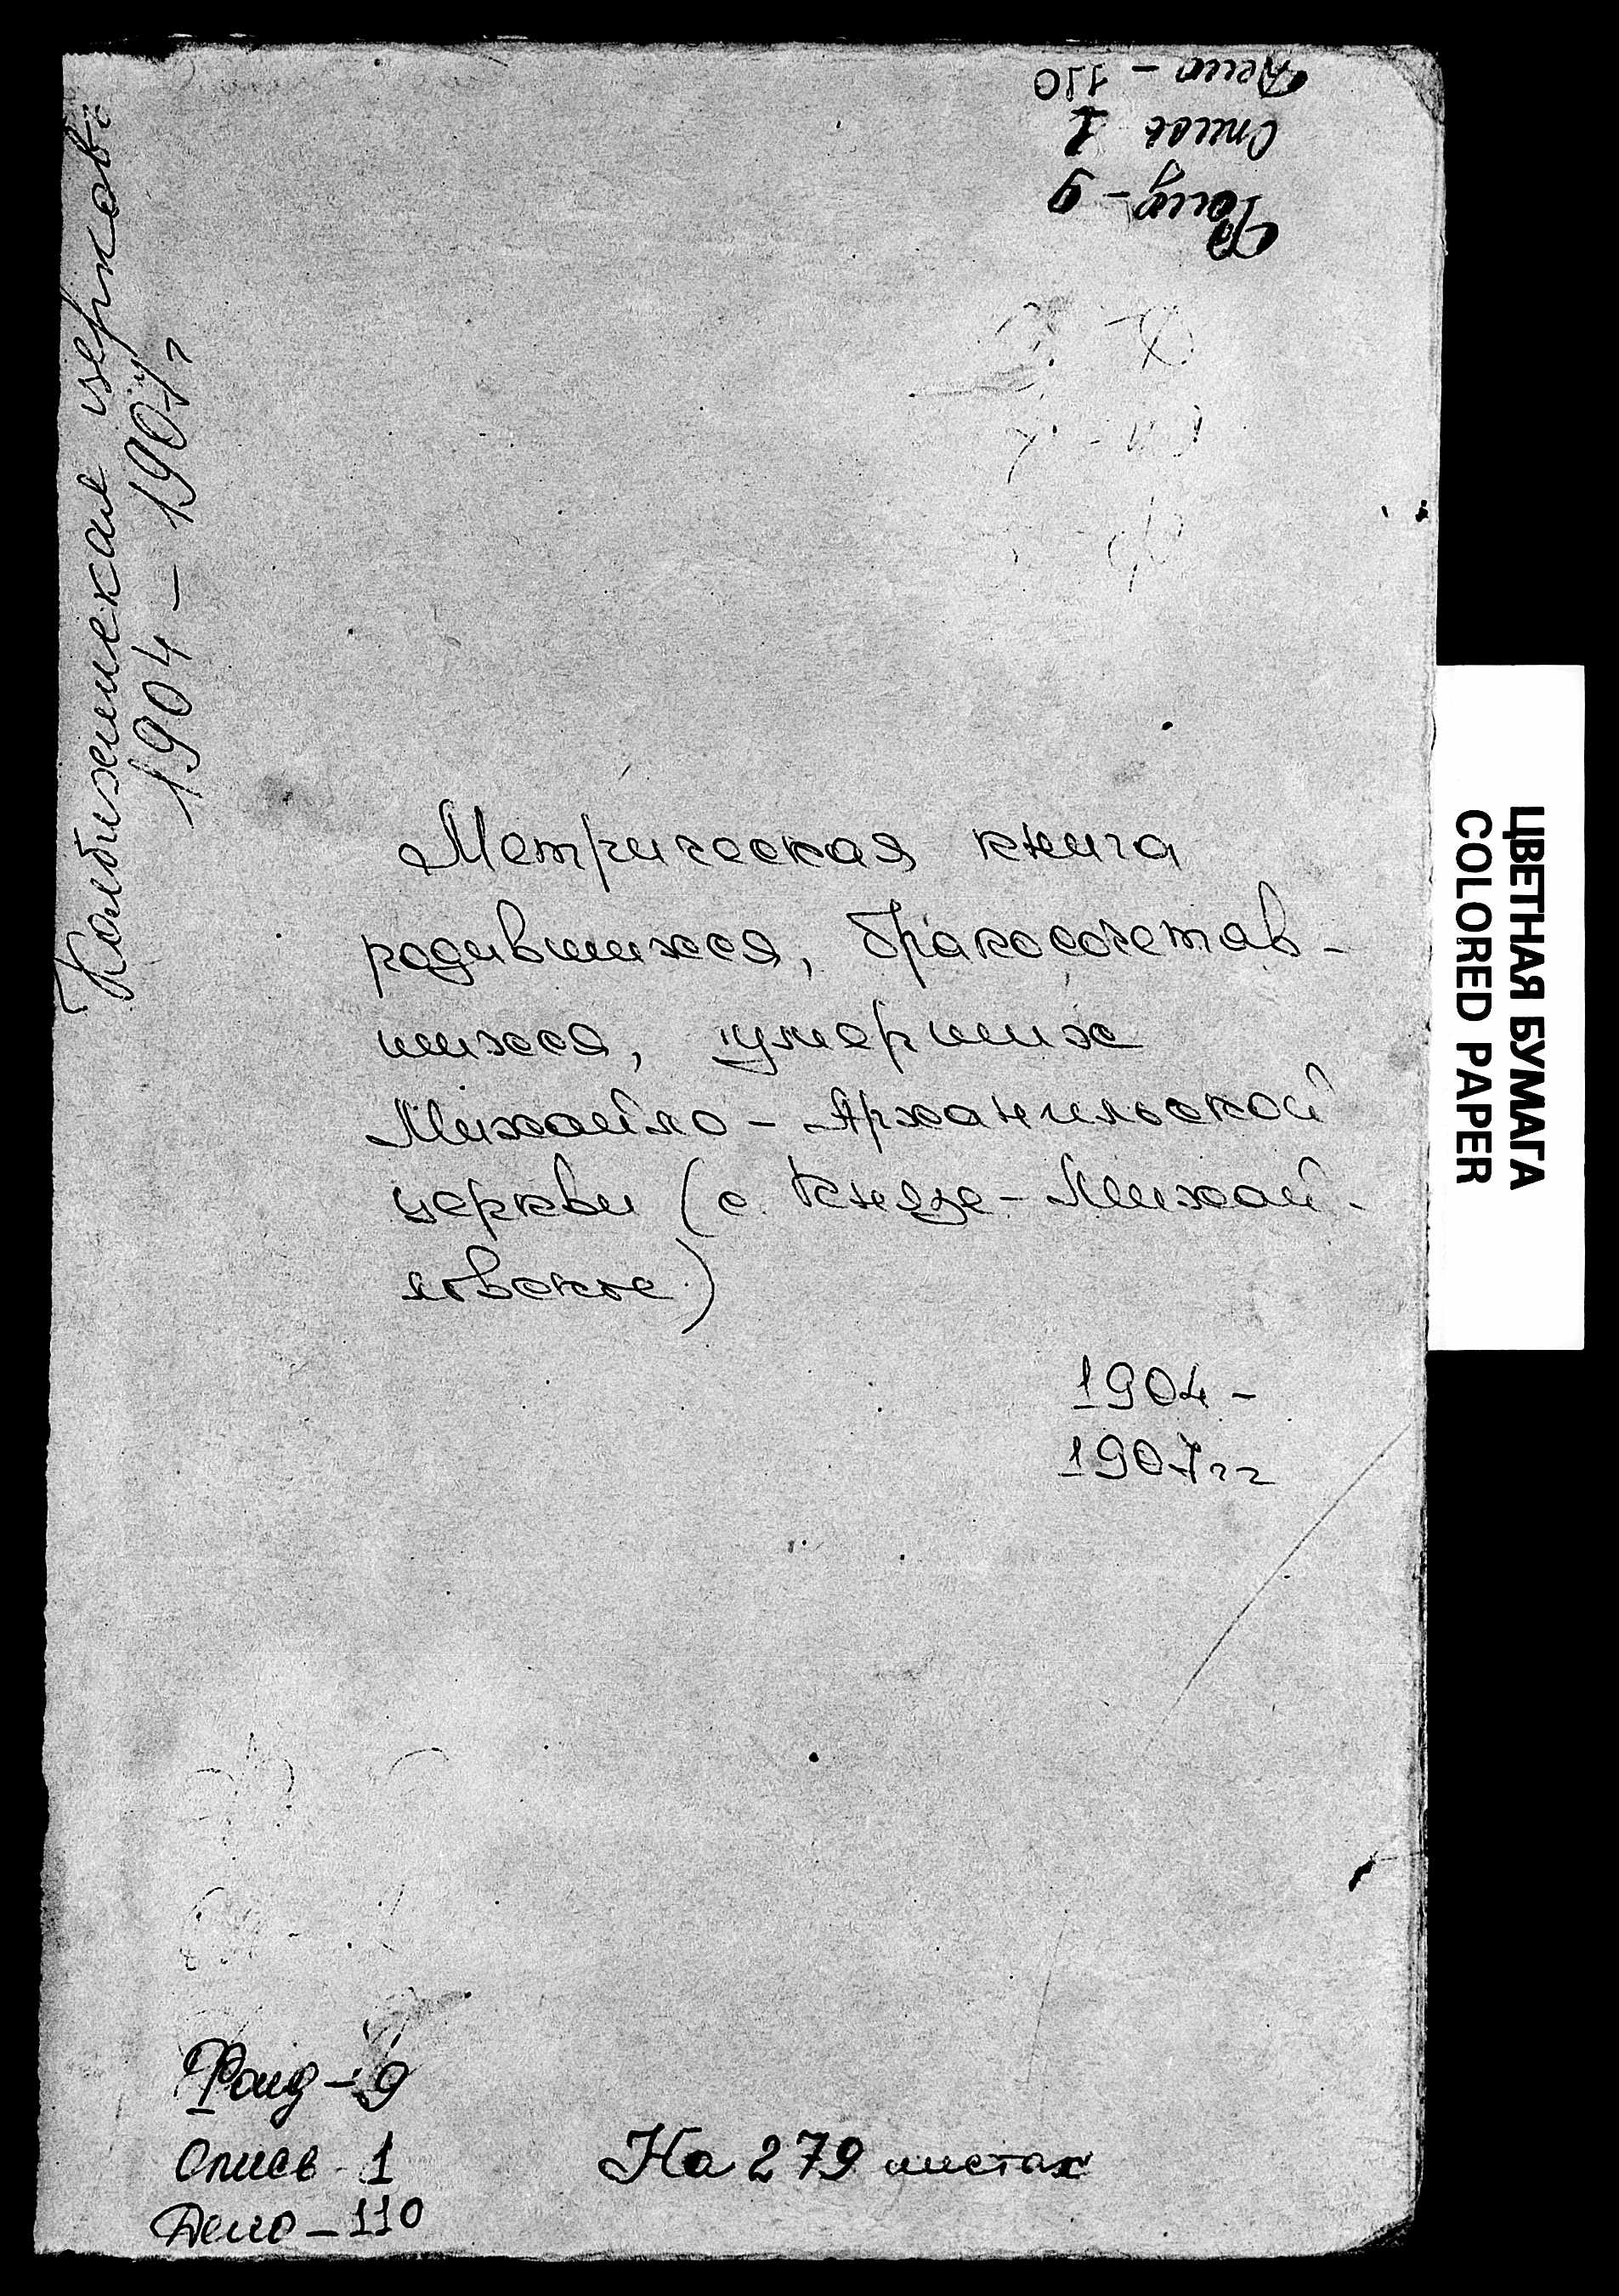 Дело - 110
Опись 1
Фонд - 9
церковь
1904 - 1907 г
Метрическая книга
родившихся, бракосочетав-
шихся, умерших
Михайло - Архангильской
церкви (с. Князе - Михай-
ловское)
1904 -
1907 гг
ЦВЕТНАЯ БУМАГА
COLORED PAPER
Фонд - 9
Опись 1
Дело - 110
На 279 листах